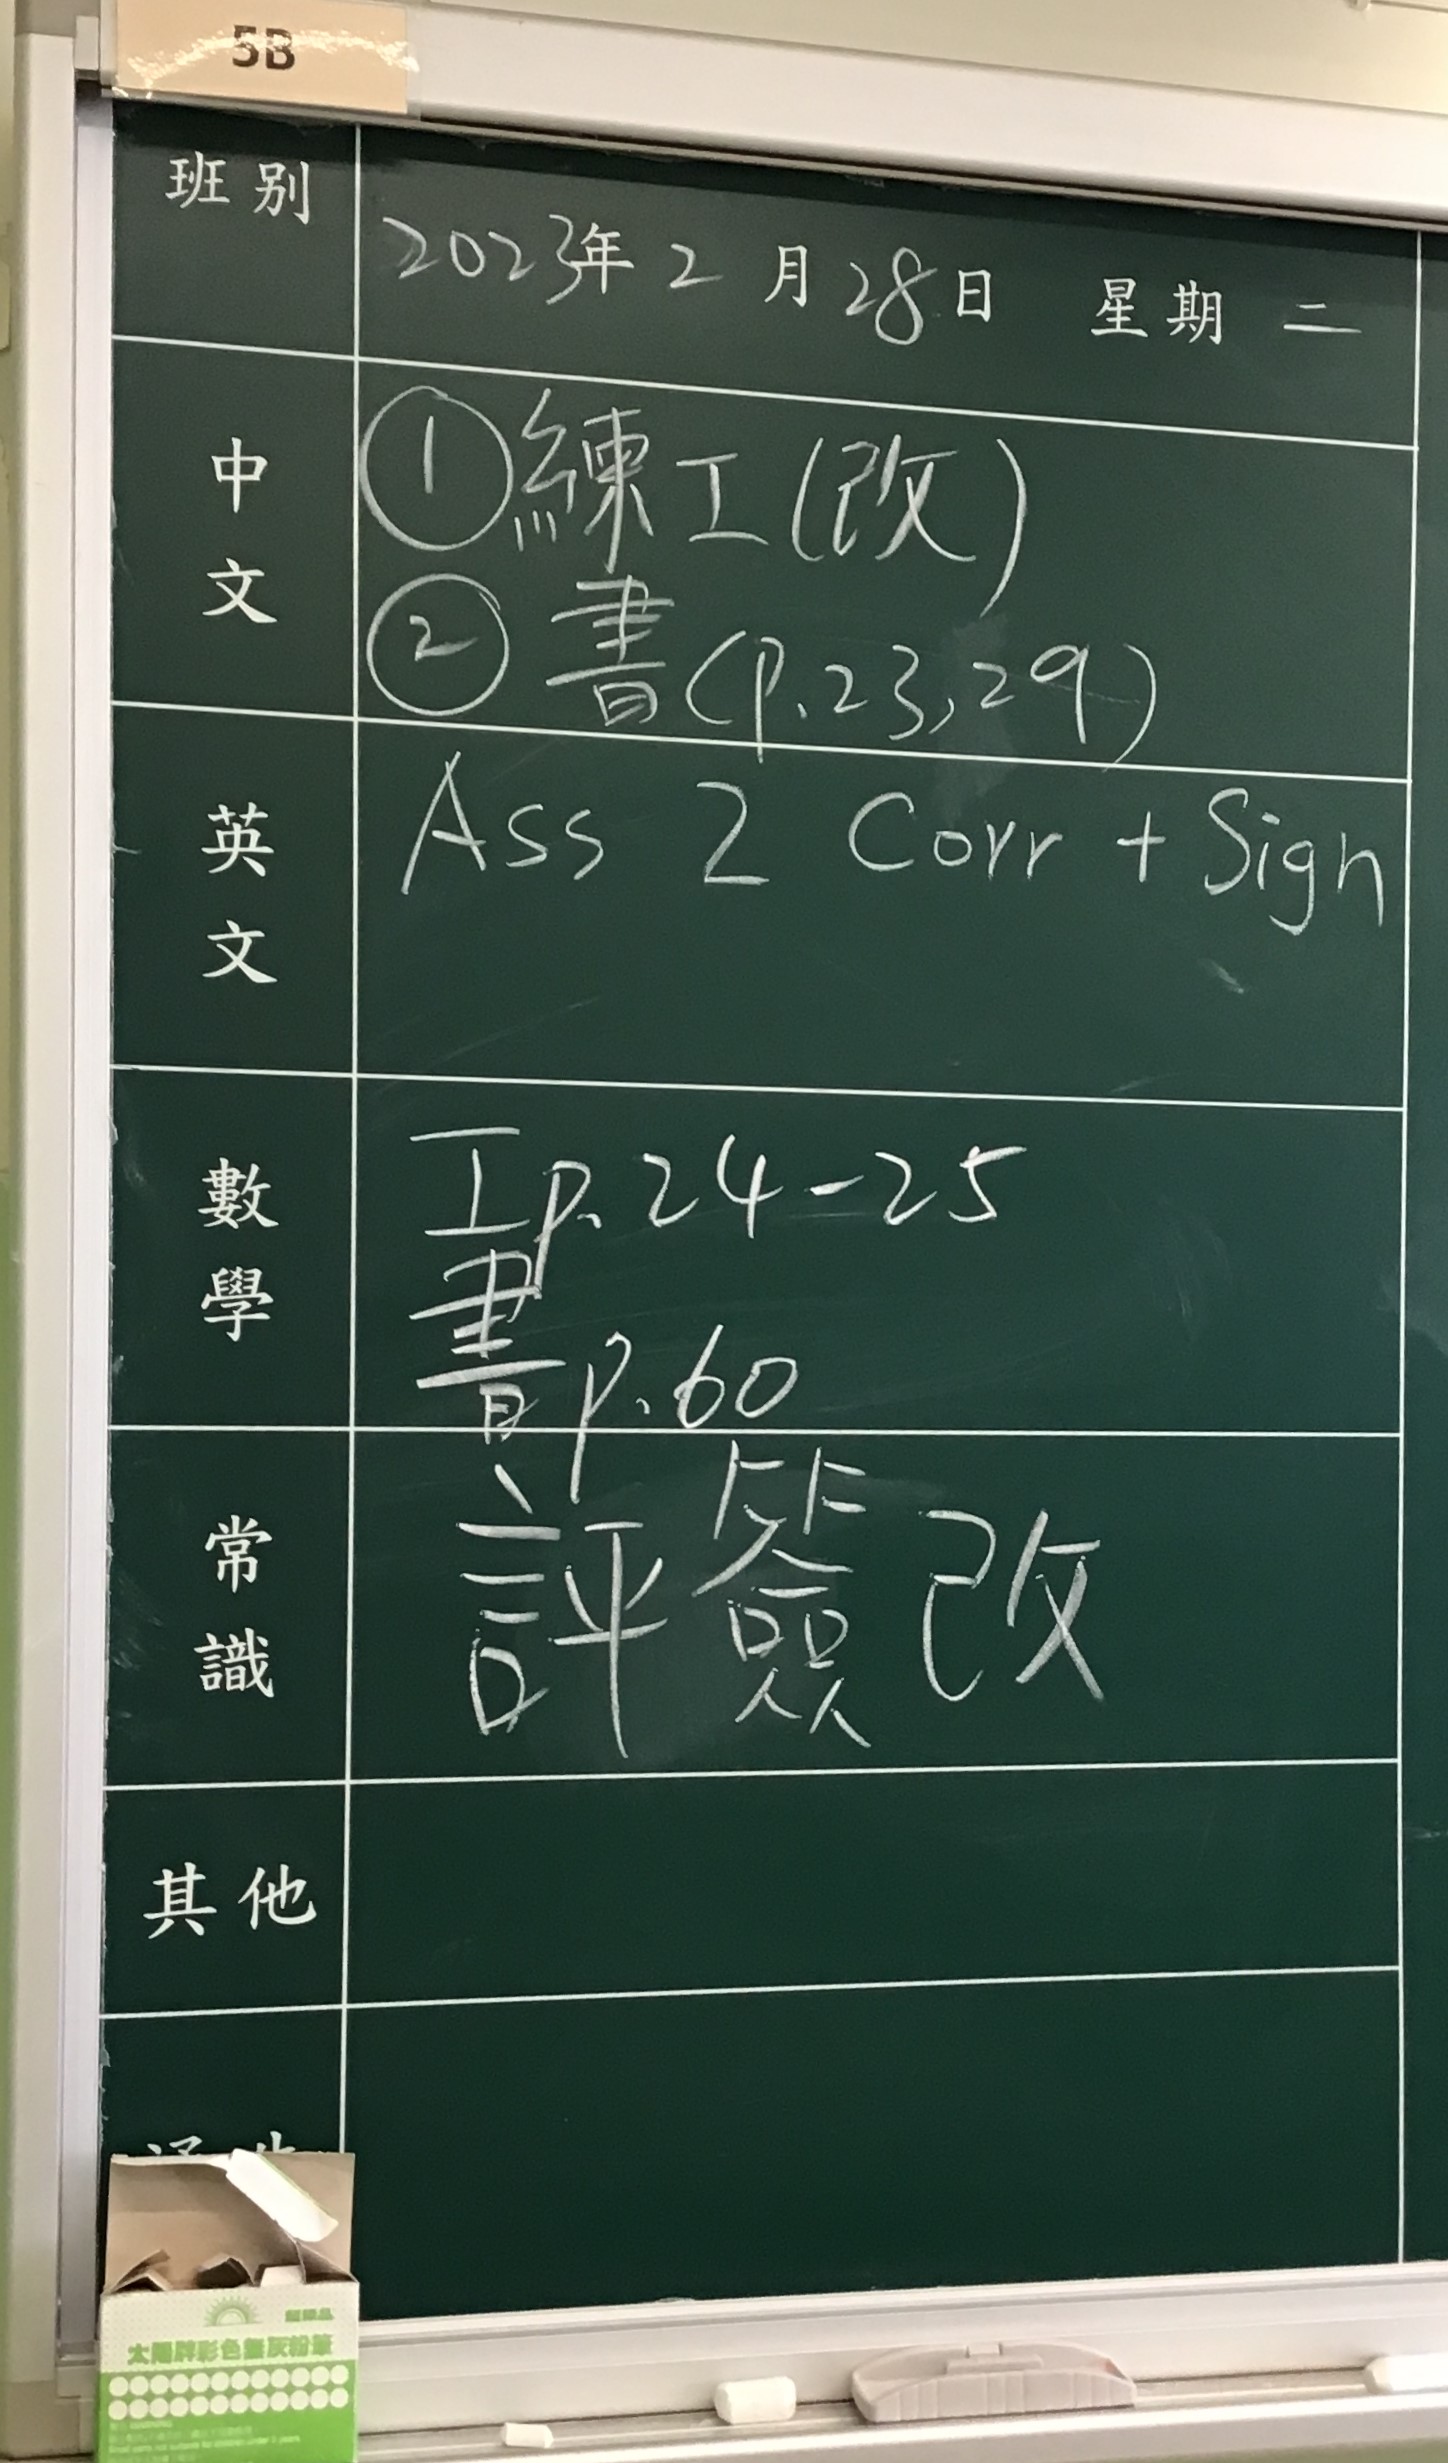 5B
班別
2023年2月28日 星期二
中文
①練工(改)
②書(p.23,29)
英文
Ass 2 Corr + Sign
數學
工p.24-25
書p.60
常識
評簽改
其他
太陽牌彩色無灰粉筆